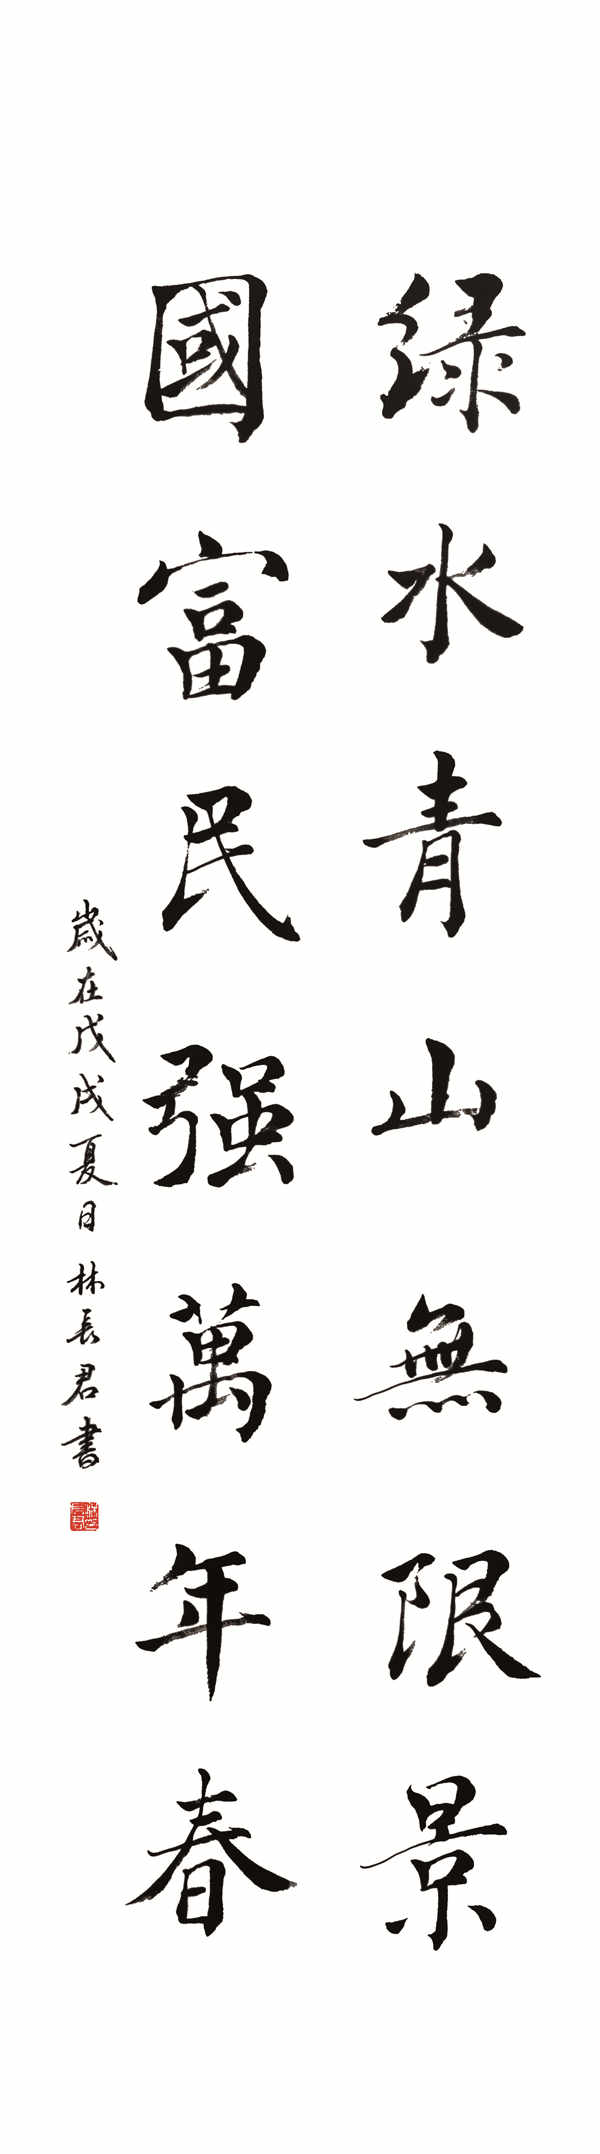 绿水青山無限景
國富民强萬年春
歲在戊戌夏月林長君書